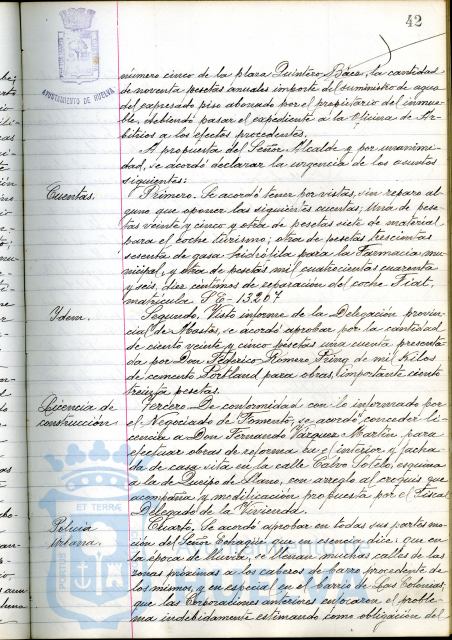 42
AYUNTAMIENTO DE HUELVA
número cinco de la plaza Quintero Báez, la cantidad
de noventa pesetas anuales importe del suministro de agua
del expresado piso abonado por el propietario del inmue-
ble, debiendo pasar el expediente a la Oficina de Ar-
bitrios a los efectos procedentes.
A propuesta del Señor Alcalde y por unanimi-
dad, se acordó declarar la urgencia de los asuntos
siguientes:
Cuentas.
Primero. Se acordó tener por vistas, sin reparo al-
guno que oponer las siguientes cuentas; una de pese-
tas veinte y cinco y otra de pesetas siete de material
para el coche turismo; otra de pesetas trescientas
sesenta de gasa hidrófila para la Farmacia mu-
nicipal, y otra de pesetas mil cuatrocientas cuarenta
y seis, diez céntimos de reparación del coche Fiat,
matrícula SE-13207
Ydem.
Segundo. Visto informe de la Delegación provin-
cial de Abastos, se acordó aprobar por la cantidad
de ciento veinte y cinco pesetas una cuenta presenta-
da por Don Federico Romero Pring de mil kilos
de cemento Portland para obras, importante ciento
treinta pesetas.
Licencia de
construcción
Tercero. De conformidad con lo informado por
el Negociado de Fomento, se acordó conceder li-
cencia a Don Fernando Vázquez Martín para
efectuar obras de reforma en el interior y facha-
da de casa sita en la calle Calvo Sotelo, esquina
a la de Queipo de Llano, con arreglo al croquis que
acompaña y modificación propuesta por el Fiscal
Delegado de la Vivienda.
Policía
Urbana.
Cuarto. Se acordó aprobar en todas sus partes mo-
ción del Señor Echagüe que en esencia dice: que en
la época de lluvia, se llenan muchas calles de las
zonas próximas a los cabezos de barro procedente de
los mismos, y en especial en el barrio de Las Colonias;
que las Corporaciones anteriores enfocaron el proble-
ma indebidamente estimando como obligación del